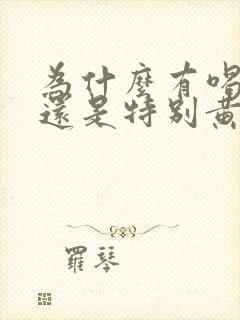 為什麼有喝
還是特別黃
羅琴